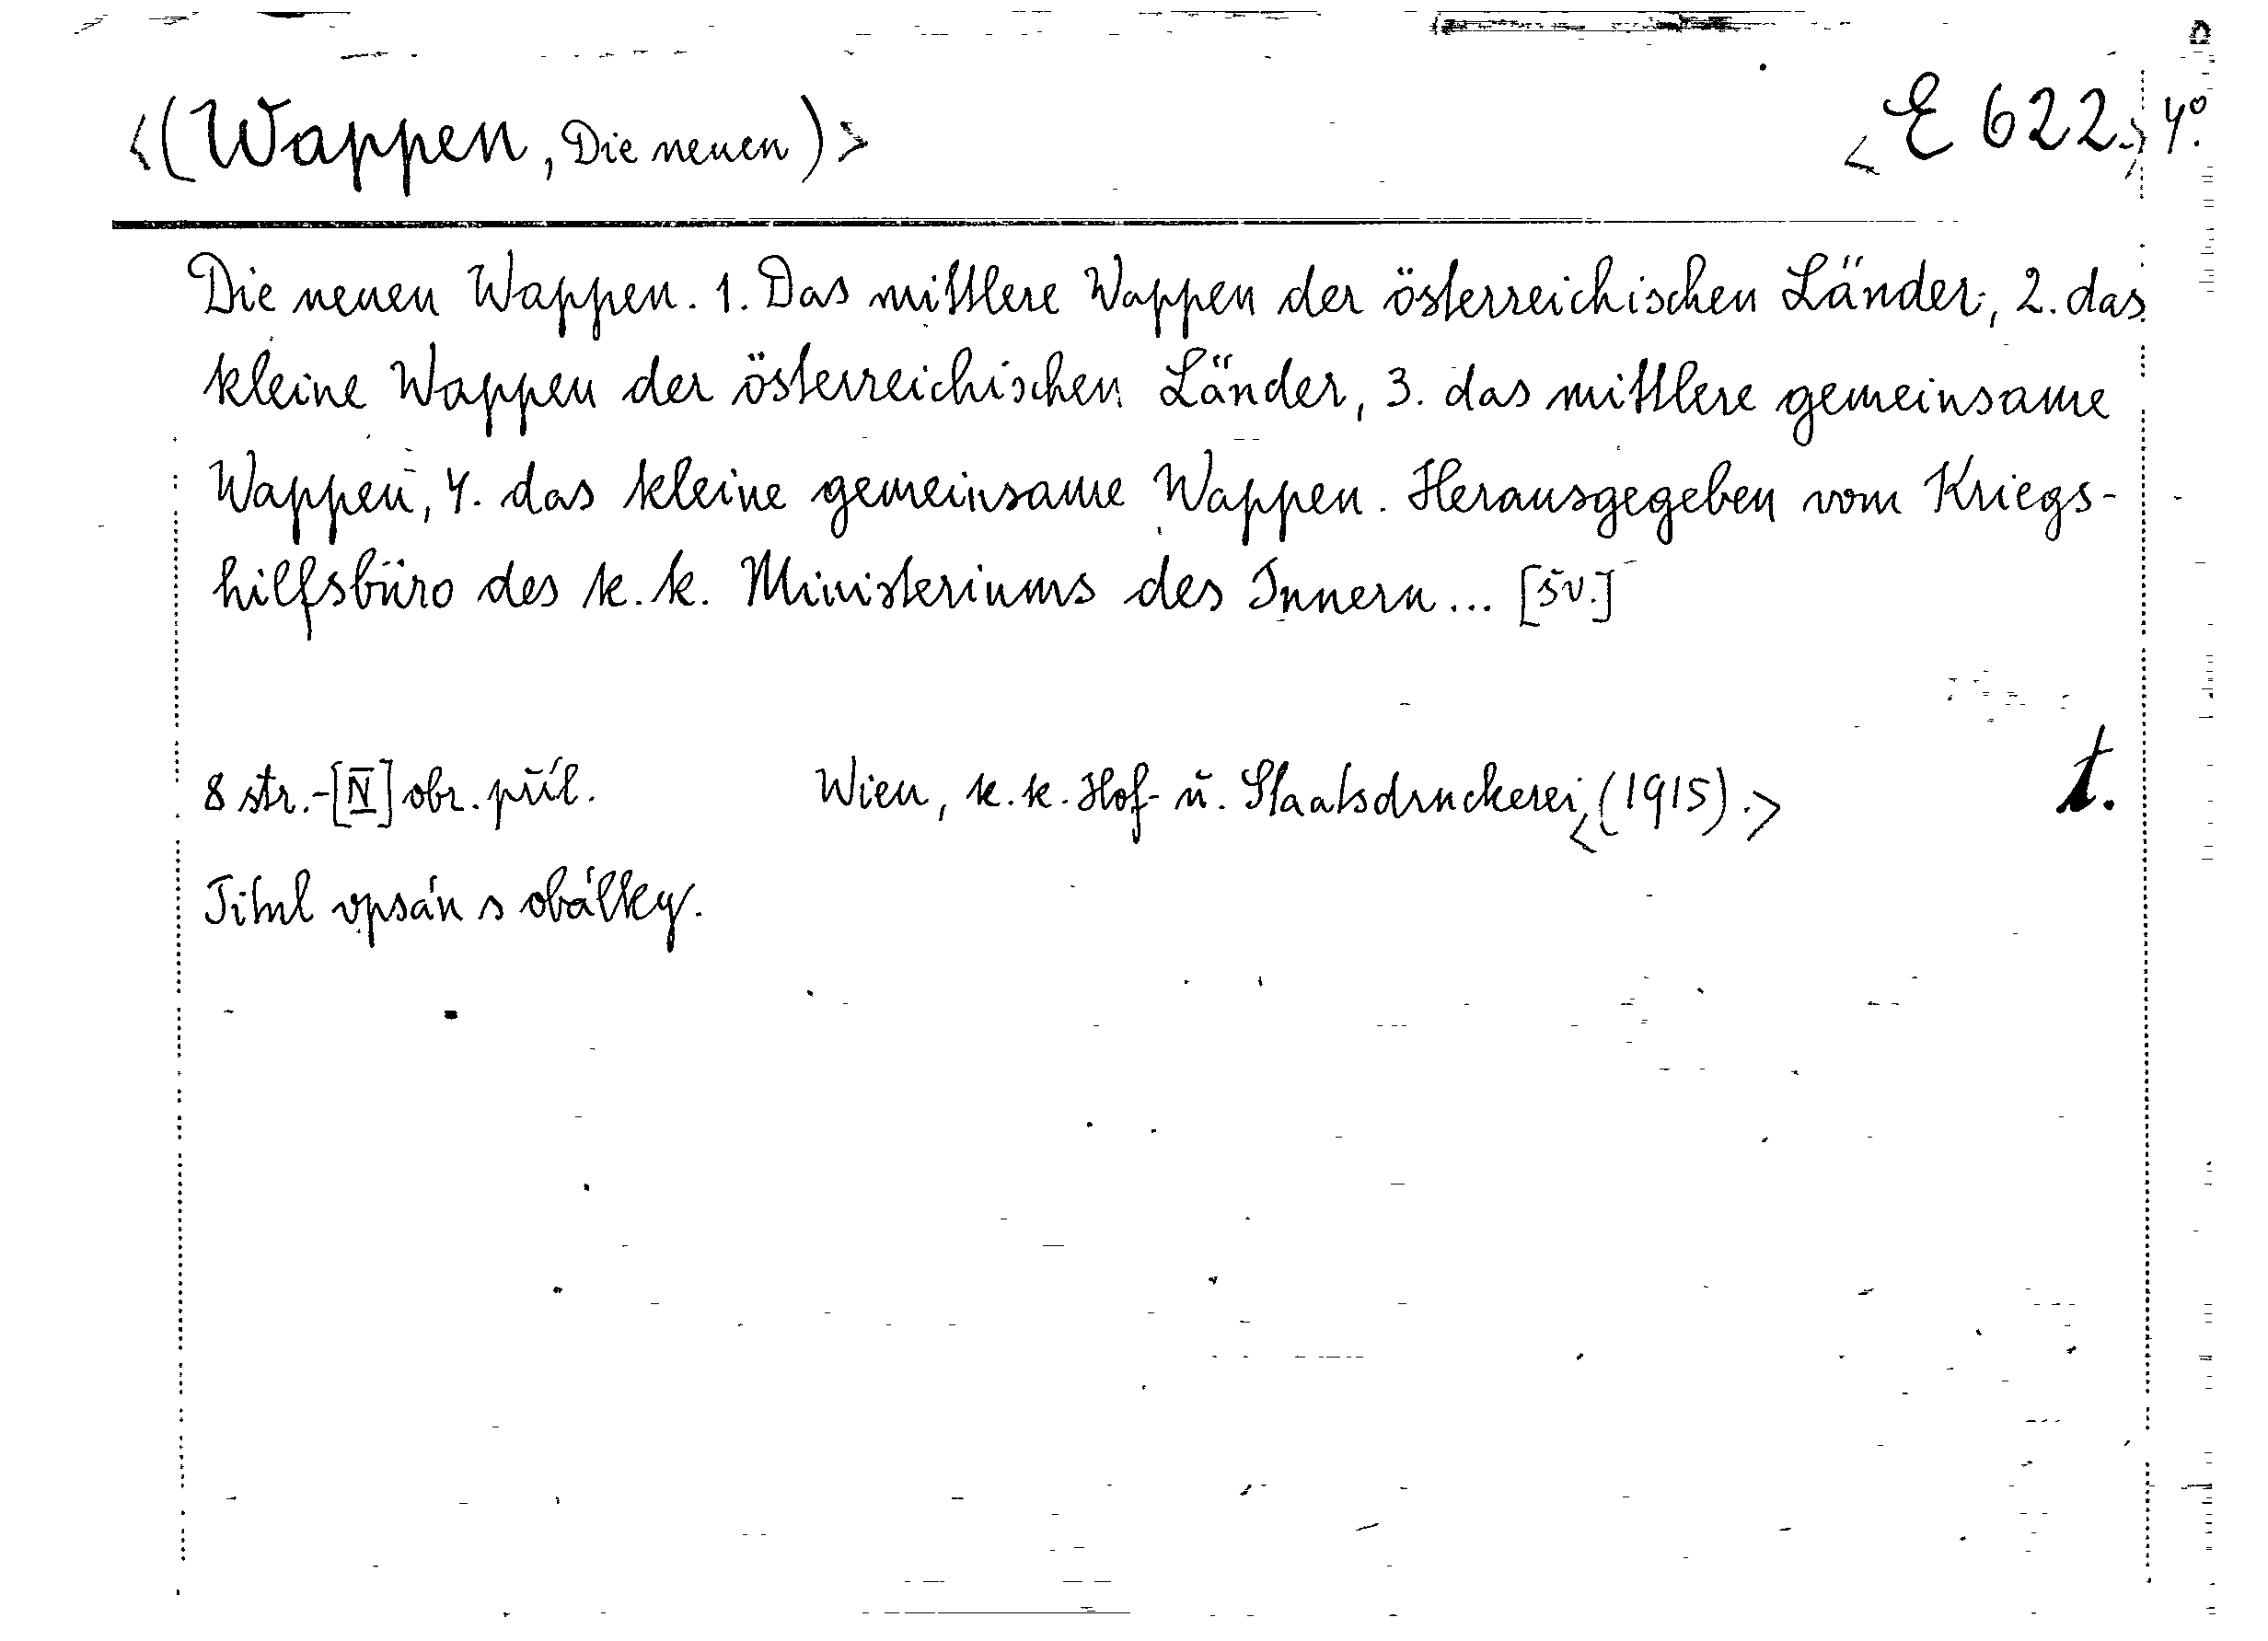 <(Wappen, Die neuen)> <E 622.> 4°.
Die neuen Wappen. 1. Das mittlere Wappen der österreichischen Länder, 2. das
kleine Wappen der österreichischen Länder, 3. das mittlere gemeinsame
Wappen, 4. das kleine gemeinsame Wappen. Herausgegeben vom Kriegs-
hilfsbüro des k. k. Ministeriums des Innern... [šv.]
8 str.-[IV] obr. příl. Wien, k. k. Hof- u. Staatsdruckerei <(1915).> t.
Titul vpsán s obálky.